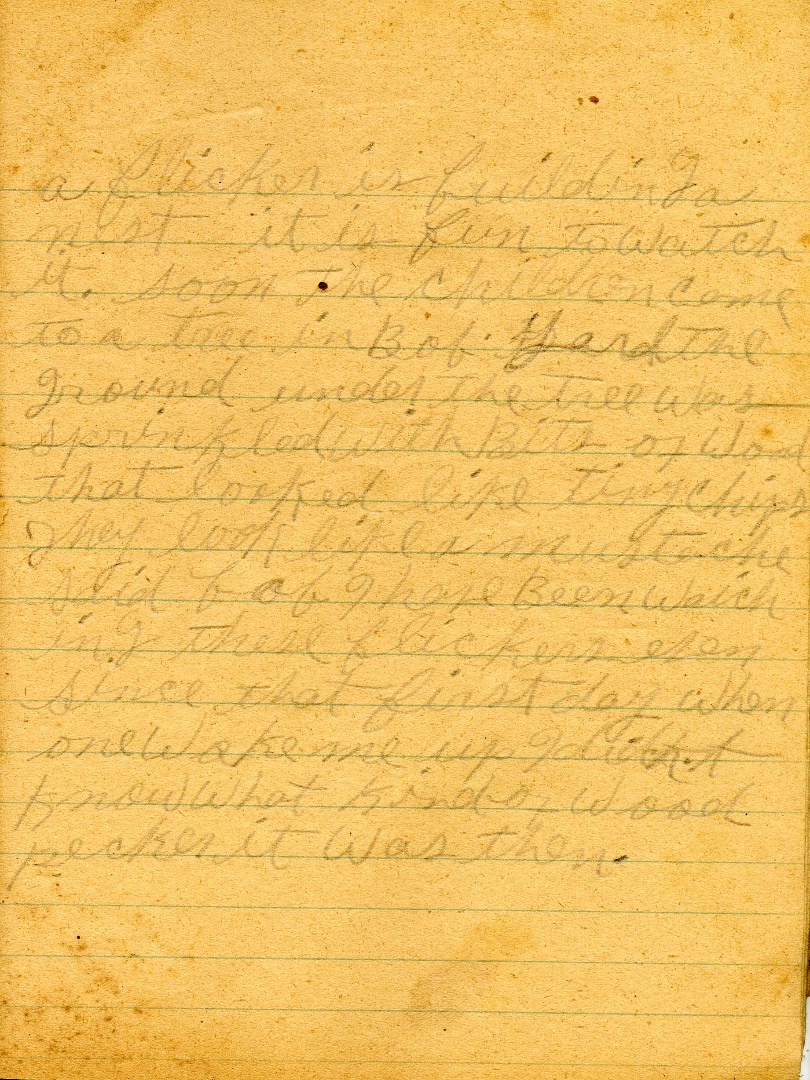 a flicker is building a
nest it is fun to watch
it. soon the children come
to a tree in Bob yard the
ground under the tree was
sprinkled with Bits of Wood
that looked like tiny chips
They look like a musteche
said bob I have Been which
ing these flickers even
since that first day when
one Wake me up I
know What kind of Wood
pecker it Was then